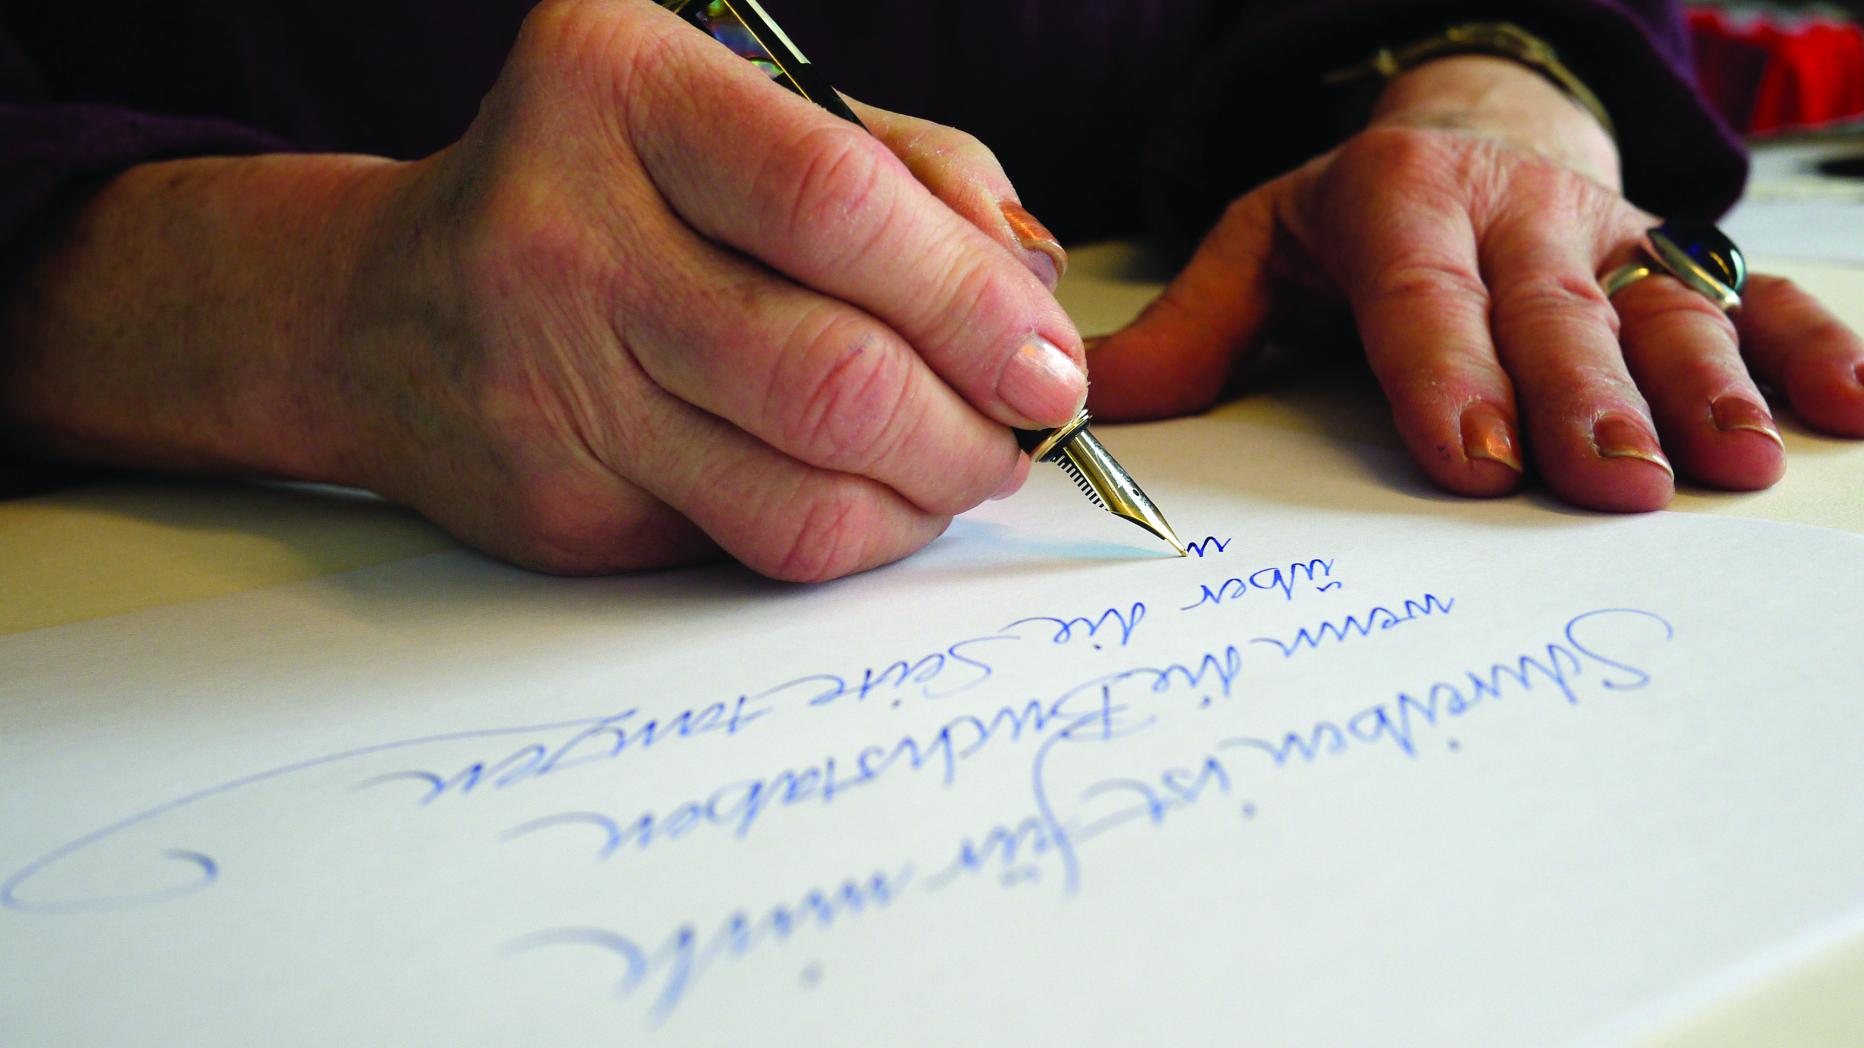 Schreiben ist für mich
wenn die Buchstaben
über die Seite tanzen